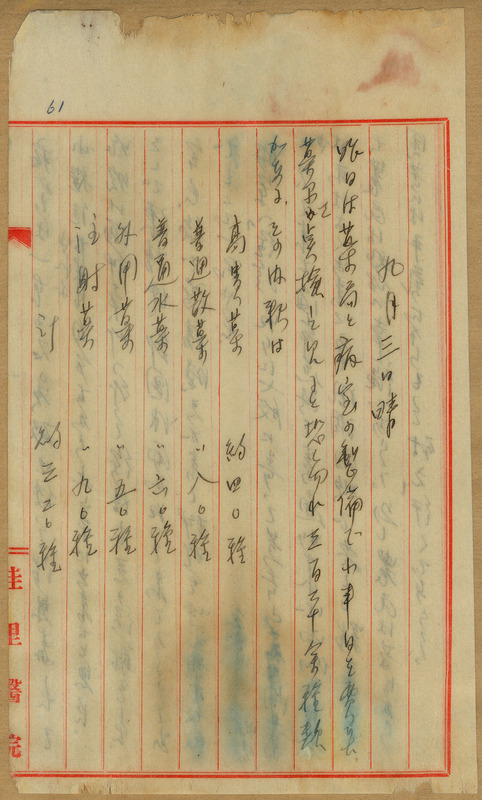 61
九月三日晴
昨日は薬局と病室の整備で小半日を費す、
薬品を点検して見ると恐られ三百二十余種類
がある、その内訳は
高貴薬 約四〇種
普通散薬 〃八〇種
普通水薬 〃六〇種
外用薬 〃五〇種
注射薬 〃九〇種
計 約三二〇種
桂里醫院